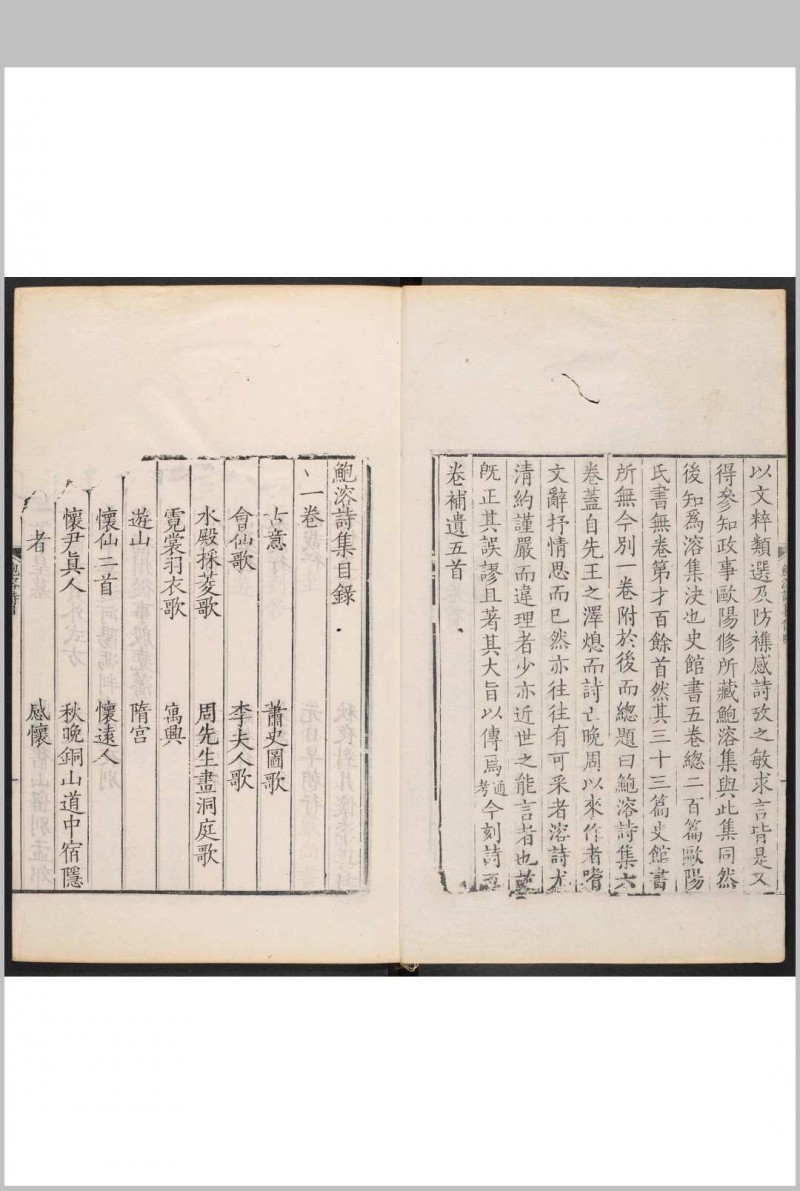 以文粹類選及防襍感詩攷之敏求言皆是又
得參知政事歐陽修所藏鮑溶集與此集同然
後知爲溶集決也史館書五卷總二百篇歐陽
氏書無卷第才百餘首然其三十三篇史館書
所無今別一卷附於後而總題曰鮑溶詩集六
卷蓋自先王之澤熄而詩亡晚周以來作者嗜
文辭抒情思而已然亦往往有可采者溶詩尤
清約謹嚴而違理者少亦近世之能言者也
旣正其誤謬且著其大旨以傳焉通考今刻詩
卷補遺五首
鮑溶詩集目錄
一卷
古意 蕭史圖歌
會仙歌 李夫人歌
水殿採菱歌 周先生畫洞庭歌
霓裳羽衣歌 寓興
遊山 隋宮
懷仙二首 懷遠人
懷尹眞人 秋晚銅山道中宿隱
者 感懷